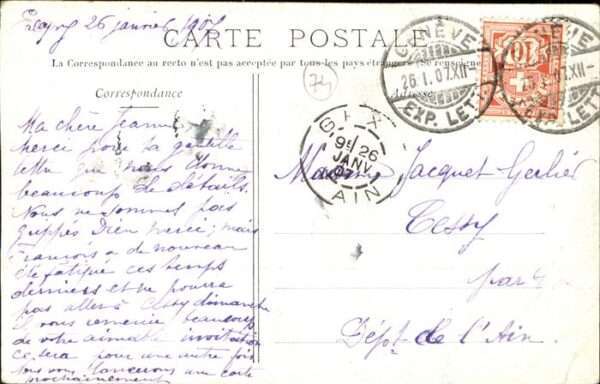 26 janvier 1907
CARTE POSTALE
La Correspondance au recto n'est pas acceptée par tous les pays étrangers (Se renseigner
Correspondance
Adresse
74
GENÈVE
26.I.07.XII-
EXP. LETT.
10
GEX
9E 26
JANV.
07
AIN
Ma chère Jeanne
Merci pour ta gentille
lettre que nous donne
beaucoup de détails.
Nous ne sommes pas
grippés Dieu merci; mais
François a de nouveau
été fatigué ces temps
derniers et ne pourra
pas aller à Cessy dimanche
vous remercie beaucoup
de votre aimable invitation
ce sera pour une autre fois
Nous vous lancerons une carte
prochainement
Madame Jacquet-Gerlier
Cessy
par
Dépt de l'Ain.